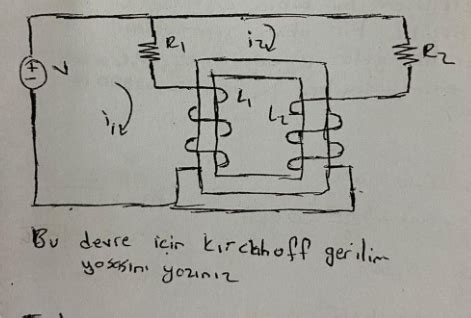 R1
i2
R2
+
-
V
i1
L1
L2
Bu devre için kırckhoff gerilim
yasasını yazınız